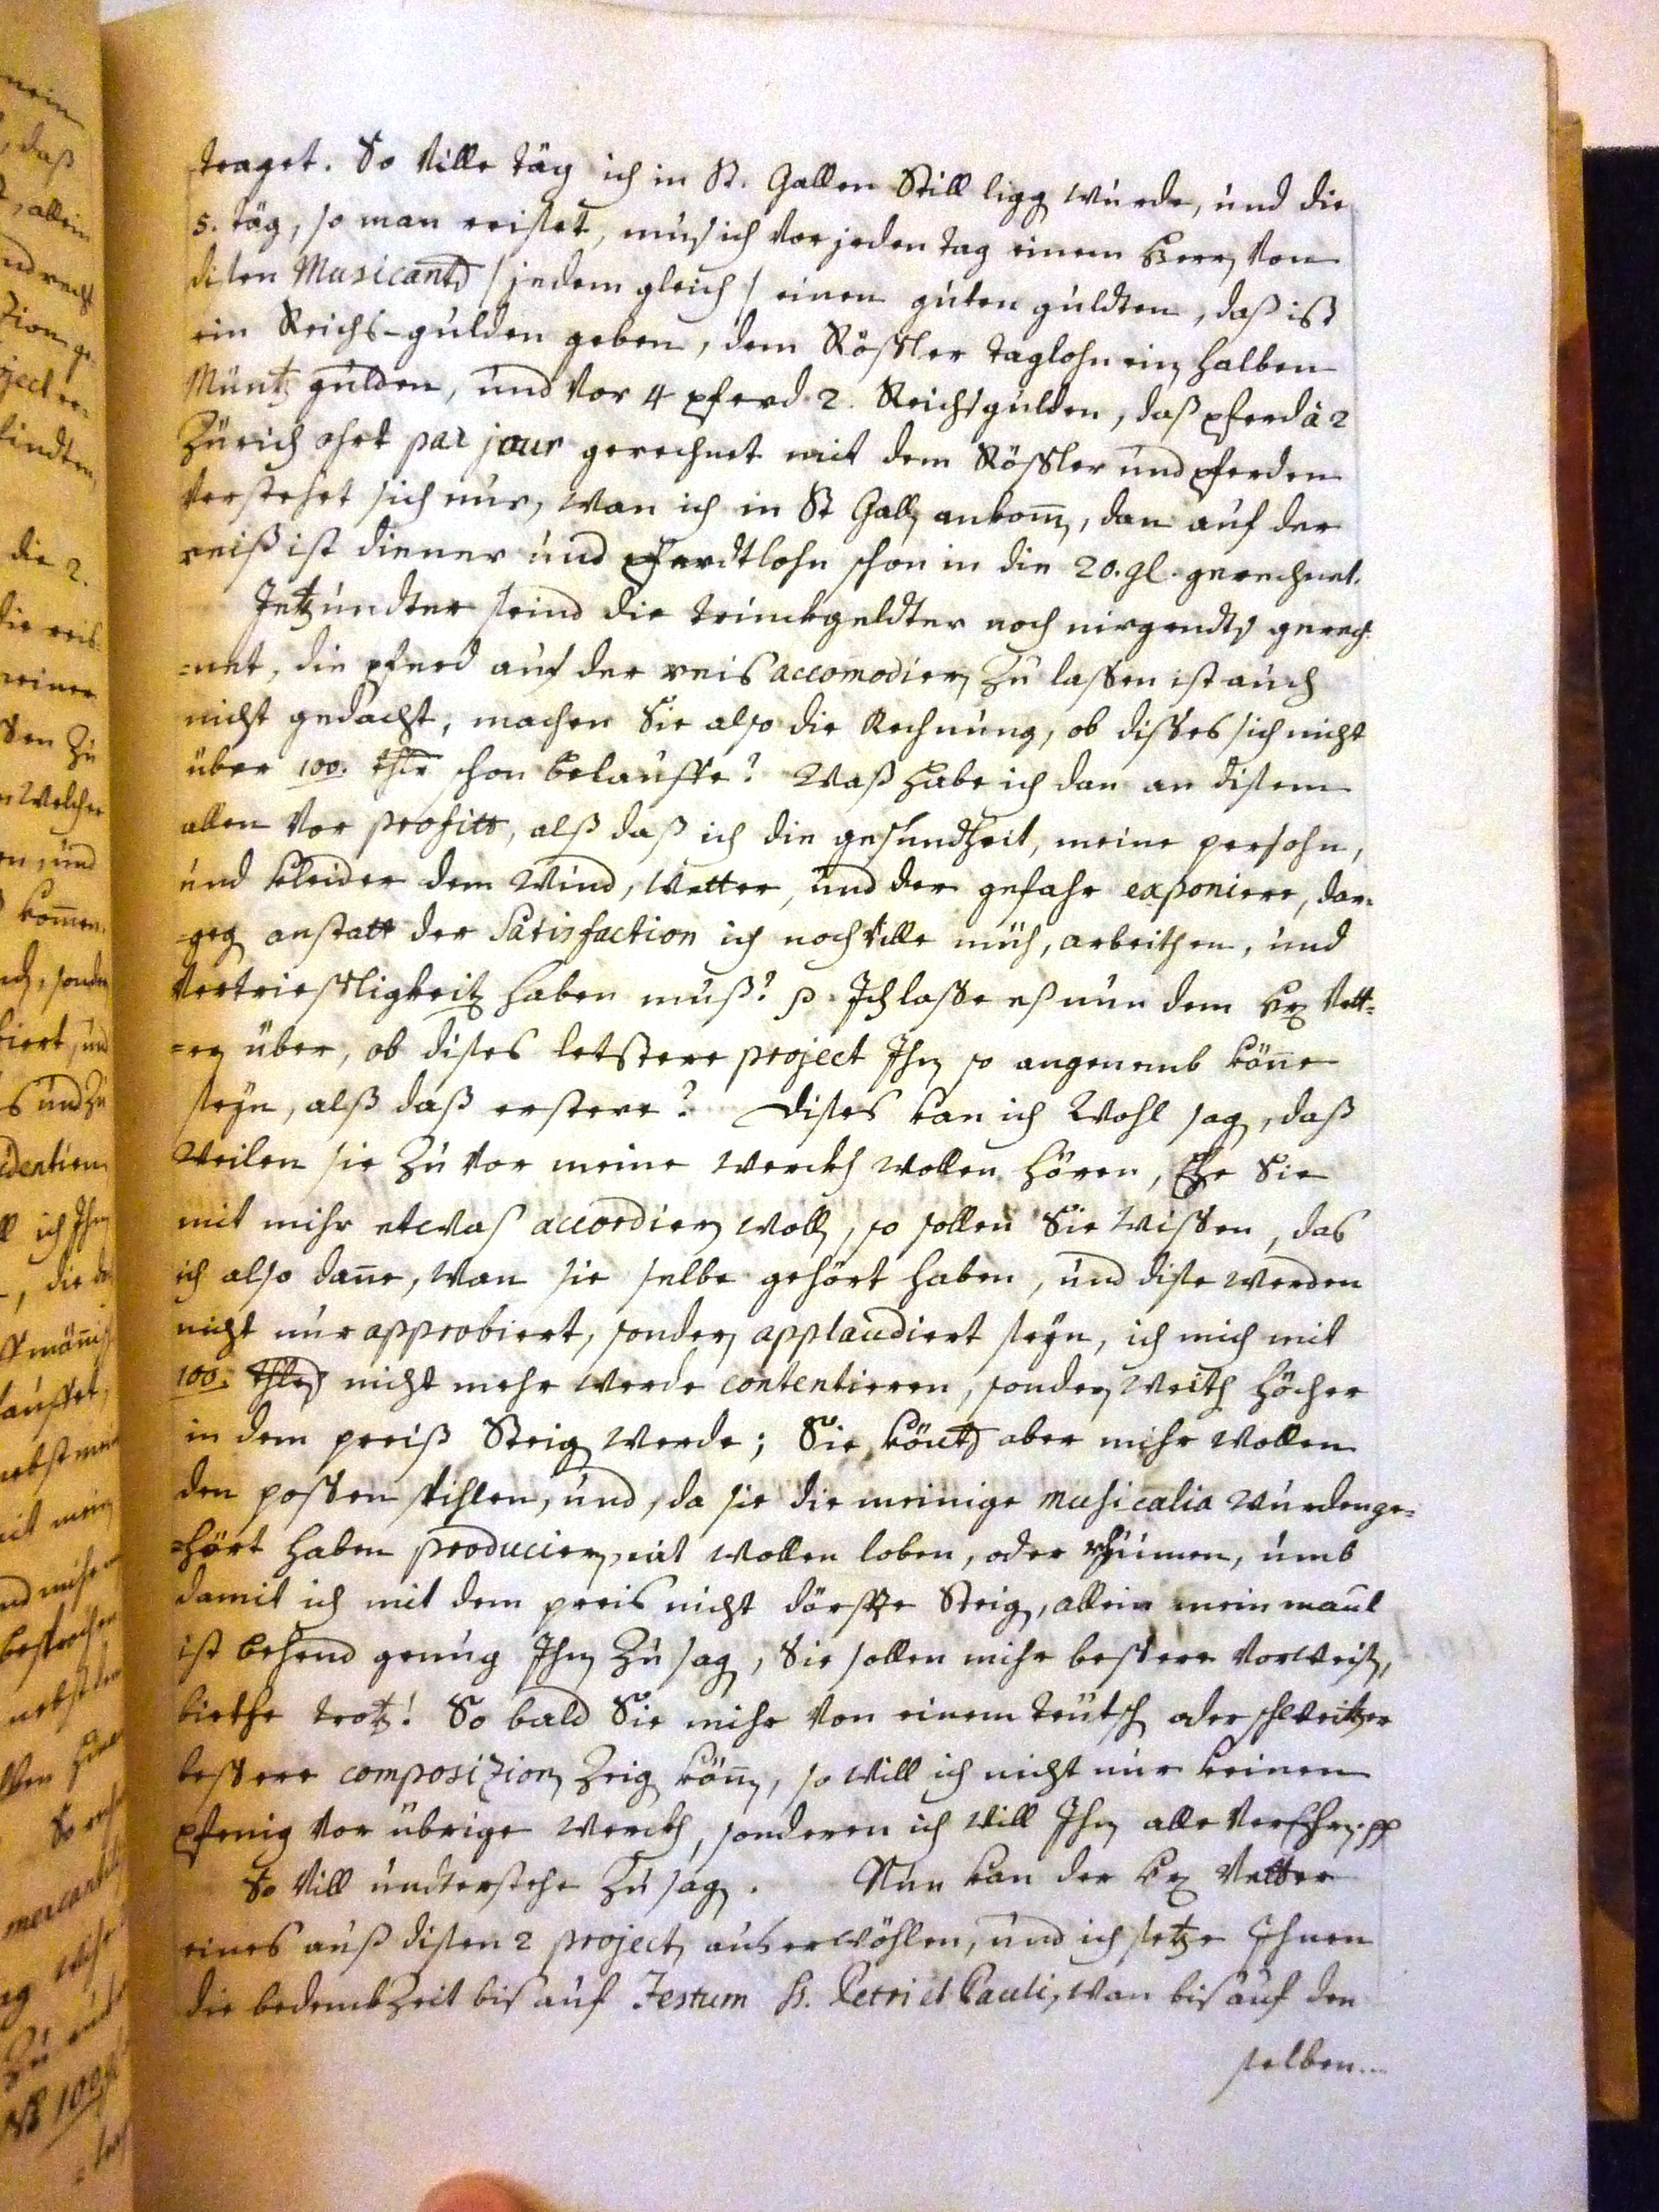 traget. So ville täg ich in St. Gallen Still ligg wurde, und die
5. täg, so man reiset, mus ich vor jeden tag einem Herrn von
disen Musicants / jedem gleich / einen guten guldten, daß ist
ein Reichs-gulden geben, dem Rößler taglohn ein halben
Müntz gulden, und vor 4 pferd 2. Reichsgulden, daß pferd à 2
Zürich ohrt par jour gerechnet mit dem Rößler und pferden
verstehet sich nur, wan ich in St Gall ankom, dan auf der
reiß ist diener und Pferdtlohn schon in die 20. gl. gerechnet.
Jetzundter seind die trinckgeldter noch nirgendts gerech-
=net, die pferd auf der reis accomodiern zu lassen ist auch
nicht gedacht, machen Sie also die Rechnung, ob disses sich nicht
über 100. thlr schon belauffe? Waß habe ich dan an disem
allen vor profitt, alß daß ich die gesundheit, meine persohn,
und kleider dem Wind, wetter, und der gefahr exponiere, dar-
=geg anstatt der Satisfaction ich noch ville müh, arbeithen, und
vertrießligkeitz haben muß? p. Ich lasse eß nun dem Hr Vett=
=ern über, ob dises letstere project Ihn so angenemb köne
seyn, alß daß erstere? Dises kan ich Wohl sag, daß
Weilen sie zu vor meine werckh wollen hören, Ehe Sie
mit mihr etwas accordiern woll, so sollen Sie wissen, das
ich also dane, wan sie selbe gehört haben, und dise werden
nicht nur approbiert, sondern applaudiert seyn, ich mich mit
100. thlrs nicht mehr werde contentieren, sondern weith höcher
in dem preiß Steig werde; Sie könts aber mihr wollen
den possen spihlen, und, da sie die meinige musicalia wurden ge=
=hört haben producieren, nit wollen loben, oder rhümen, umb
damit ich mit dem preis nicht dörffe Steig, allein mein maul
ist behend genug Ihn zu sag, Sie sollen mihr bessere vorweis,
biethe trotz! So bald Sie mihr von einem teütsch oder schweitzer
bessere composizion Zeig könn, so will ich nicht nur keinen
pfenig vor übrige werckh, sonderen ich will Ihn alle verEhrn. pp
So vill understehe zu sag. Nun kan der Hr Vetter
eines auß disen 2 project auserwöhlen, und ich setze Ihnen
die bedenckzeit bis auf Festum SS. Petri et Pauli, wan bis auf den
selben...